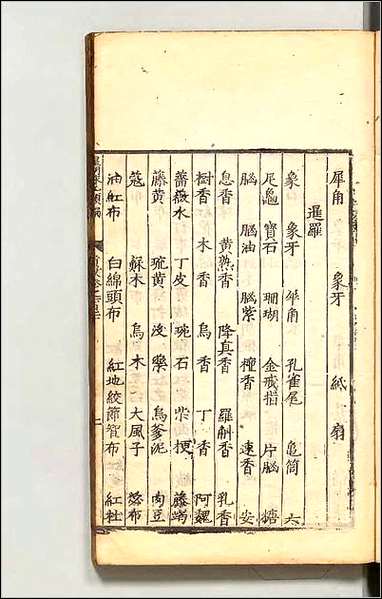 犀角 象牙 紙扇
暹羅
象 象牙 犀角 孔雀尾 龜筒 六
足龜 寶石 珊瑚 金戒指 片腦 糖
腦 腦油 腦紫 檀香 速香 安
息香 黄熟香 降真香 羅斛香 乳香
樹香 木香 烏香 丁香 阿魏
薔薇水 丁皮 琬石 柴梗 藤竭
藤黄 琉黄 没藥 烏爹泥 肉豆
蔻 蘇木 烏木 大風子 苾布
油紅布 白綿頭布 紅地絞節智布 紅杜